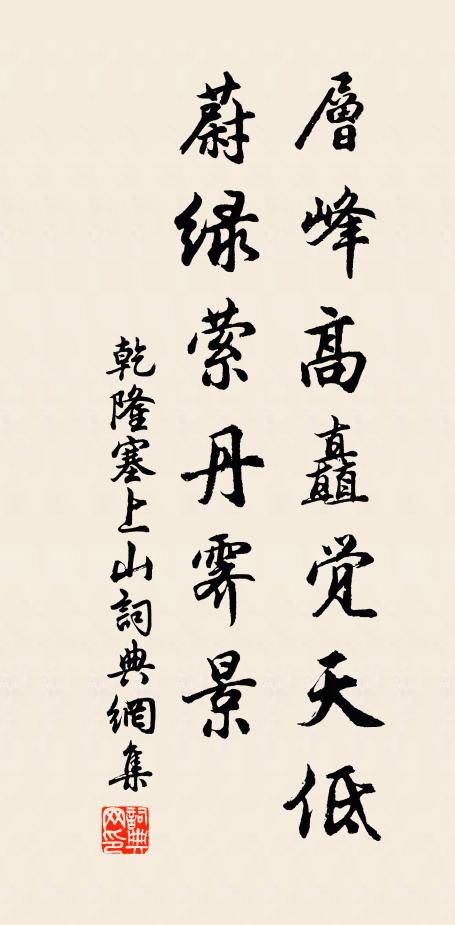 層峰高矗覺天低
蔚绿萦丹霽景
乾隆塞上山詞典網集
詞典网印